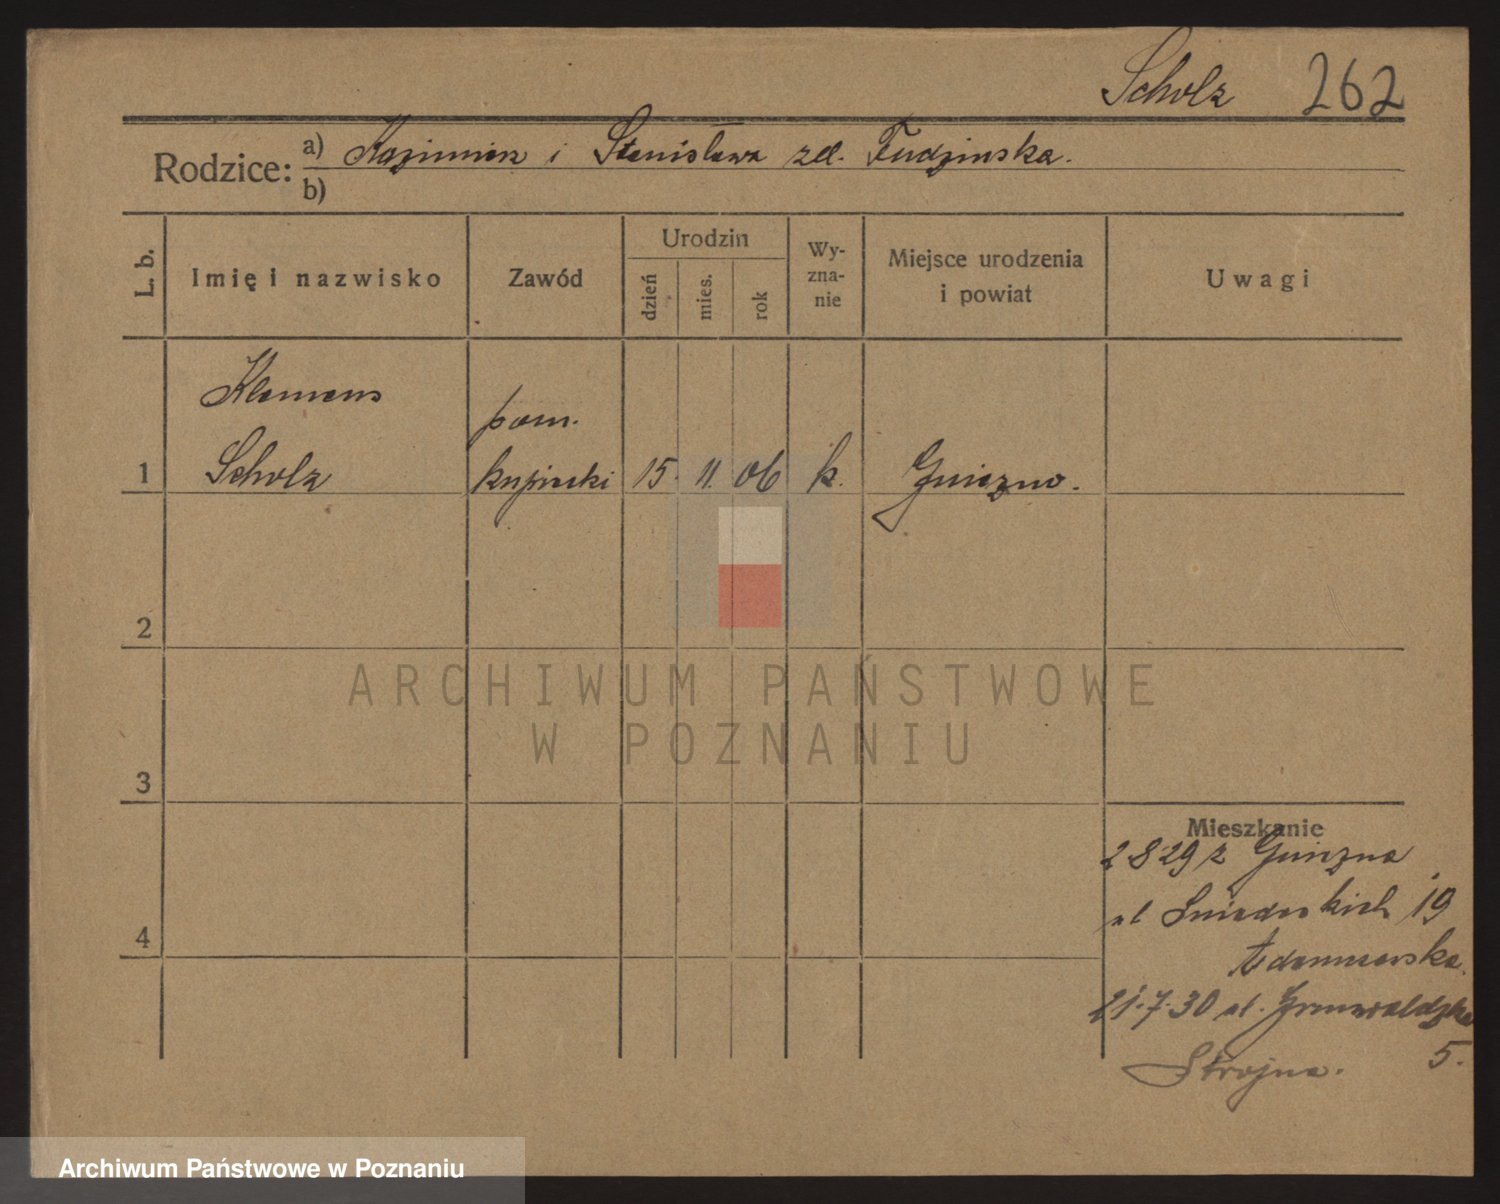 Scholz 262
Rodzice: a) Kazimierz i Stanisława zd. Tudzinska.
b)
L. b. Imię i nazwisko Zawód Urodzin dzień mies. rok Wy-zna-nie Miejsce urodzenia i powiat Uwagi
Klemens
pom.
1 Scholz kupiecki 15. 11. 06 k. Gniezno.
2
ARCHIWUM PAŃSTWOWE
W POZNANIU
3
Mieszkanie
2 8 29 z Gniezna
ul Sniadeckich 19
4
Adamczewska.
21.7.30 ul. Grunwaldzka
5.
Strojna.
Archiwum Państwowe w Poznaniu